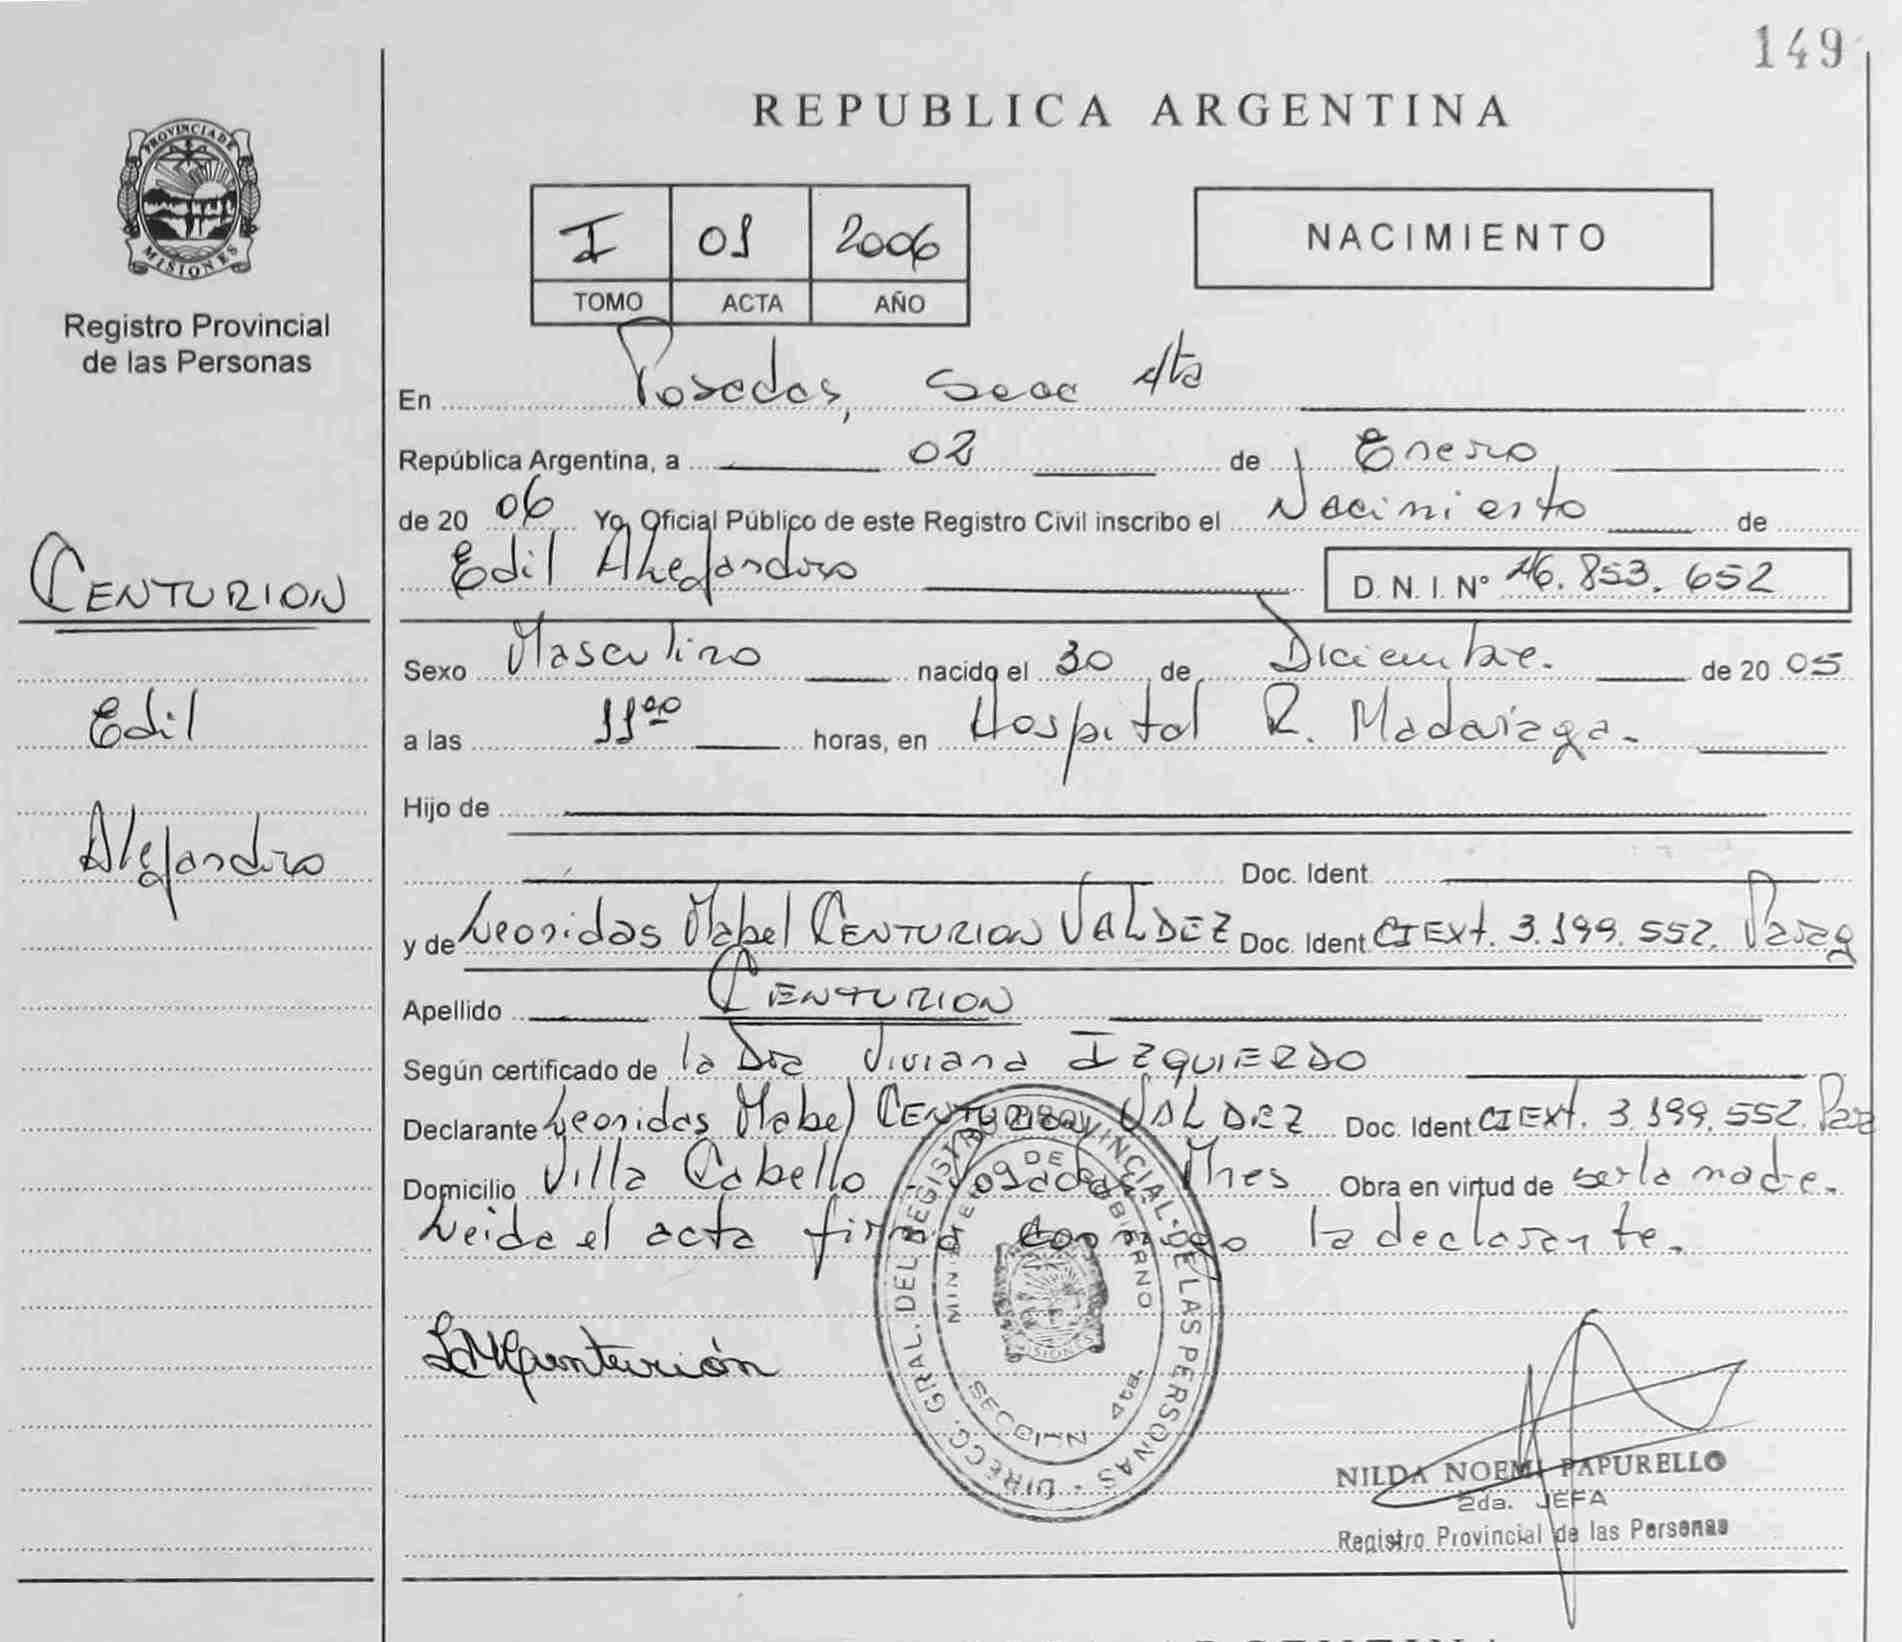 149
PROVINCIA DE
MISIONES
Registro Provincial
de las Personas
CENTURION
Edil
Alejandro
REPUBLICA ARGENTINA
I 01 2006
TOMO ACTA AÑO
NACIMIENTO
En Posadas, Secc 4ta
República Argentina, a 02 de Enero
de 20 06 Yo, Oficial Público de este Registro Civil inscribo el Nacimiento de
Edil Alejandro D. N. I. N° 46.853.652
Sexo Masculino nacido el 30 de Diciembre. de 20 05
a las 11°° horas, en Hospital R. Madariaga.
Hijo de
Doc. Ident
y de Leonidas Mabel CENTURION VALDEZ Doc. Ident CI EXt. 3.199.552. Parag
Apellido CENTURION
Según certificado de la Dra Viviana IZQUIERDO
Declarante Leonidas Mabel CENTURION VALDEZ Doc. Ident CI EXt. 3.199.552. Par
Domicilio Villa Cabello - Posadas Mnes Obra en virtud de ser la madre.
Leida el acta firma conmigo la declarante.
LMCenturión
DIRECC. GRAL. DEL REGISTRO PROVINCIAL DE LAS PERSONAS
MINISTERIO DE GOBIERNO
MISIONES
SECCION 4ta.
NILDA NOEMI PAPURELLO
2da. JEFA
Registro Provincial de las Personas